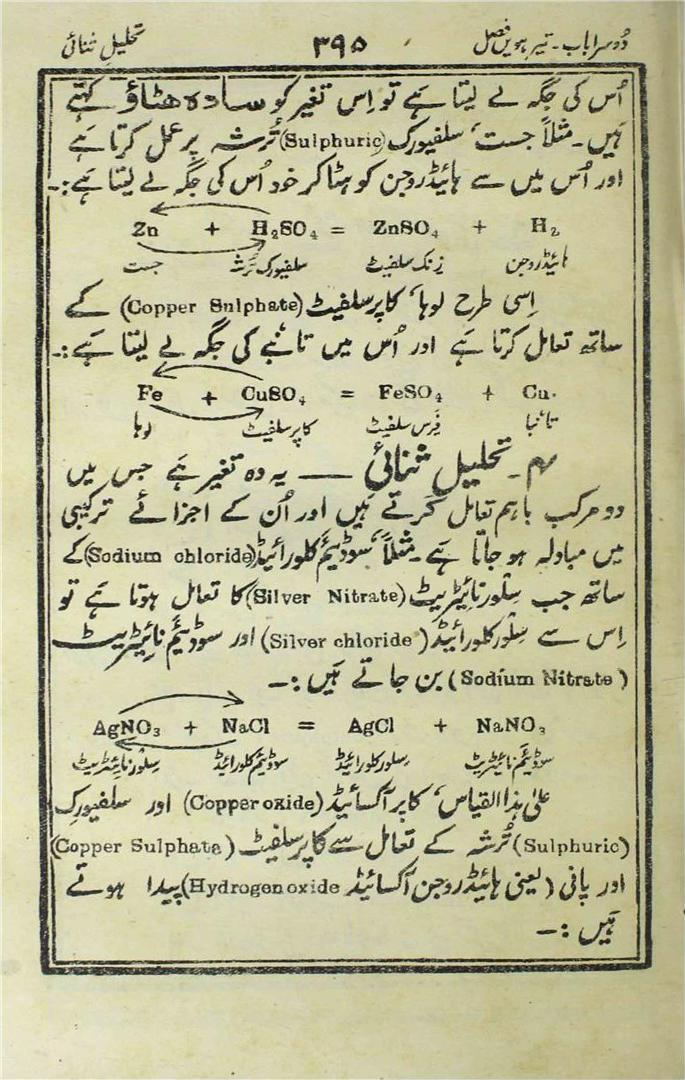 دوسرا باب۔ تیرھویں فصل ۳۹۵ تحلیلِ ثنائی
اُس کی جگہ لے لیتا ہے تو اِس تغیر کو سادہ ھٹاؤ کہتے
ہیں۔ مثلاً جست، سلفیورک (Sulphuric) تُرشہ پر عمل کرتا ہے
اور اُس میں سے ہائیڈروجن کو ہٹا کر خود اُس کی جگہ لے لیتا ہے:۔
Zn + H₂SO₄ = ZnSO₄ + H₂
جست سلفیورک تُرشہ زنک سلفیٹ ہائیڈروجن
اِسی طرح لوہا، کاپر سلفیٹ (Copper Sulphate) کے
ساتھ تعامل کرتا ہے اور اُس میں تانبے کی جگہ لے لیتا ہے:۔
Fe + CuSO₄ = FeSO₄ + Cu.
لوہا کاپر سلفیٹ فیرس سلفیٹ تانبا
۴۔ تحلیل ثنائی —— یہ وہ تغیر ہے جس میں
دو مرکب باہم تعامل کرتے ہیں اور اُن کے اجزائے ترکیبی
میں مبادلہ ہو جاتا ہے۔ مثلاً سوڈیئم کلورائیڈ (Sodium chloride) کے
ساتھ جب سِلور نائیٹریٹ (Silver Nitrate) کا تعامل ہوتا ہے تو
اِس سے سِلور کلورائیڈ (Silver chloride) اور سوڈیئم نائیٹریٹ
(Sodium Nitrate) بن جاتے ہیں:۔
AgNO₃ + NaCl = AgCl + NaNO₃
سِلور نائیٹریٹ سوڈیئم کلورائیڈ سِلور کلورائیڈ سوڈیئم نائیٹریٹ
علیٰ ہذا القیاس، کاپر آکسائیڈ (Copper oxide) اور سلفیورک
(Sulphuric) تُرشہ کے تعامل سے کاپر سلفیٹ (Copper Sulphate)
اور پانی (یعنی ہائیڈروجن آکسائیڈ Hydrogen oxide) پیدا ہوتے
ہیں:۔